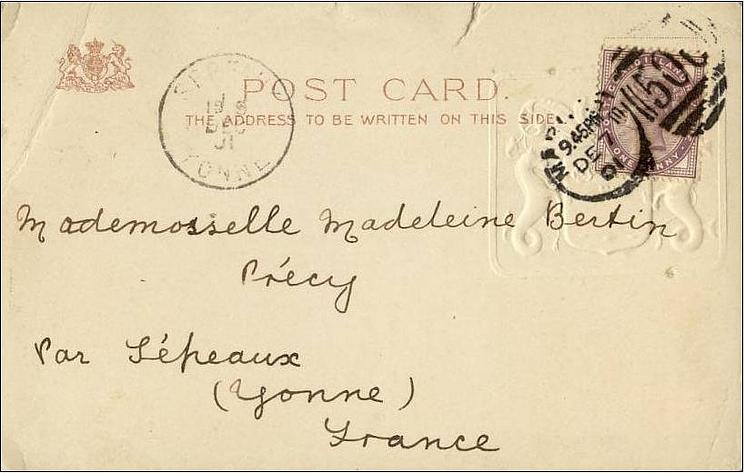 POST CARD.
THE ADDRESS TO BE WRITTEN ON THIS SIDE
YONNE
DEC
01
9.45PM
DE 7
01
ONE PENNY
Mademosselle Madeleine Bertin
Précy
Par Sépeaux
(Yonne)
France